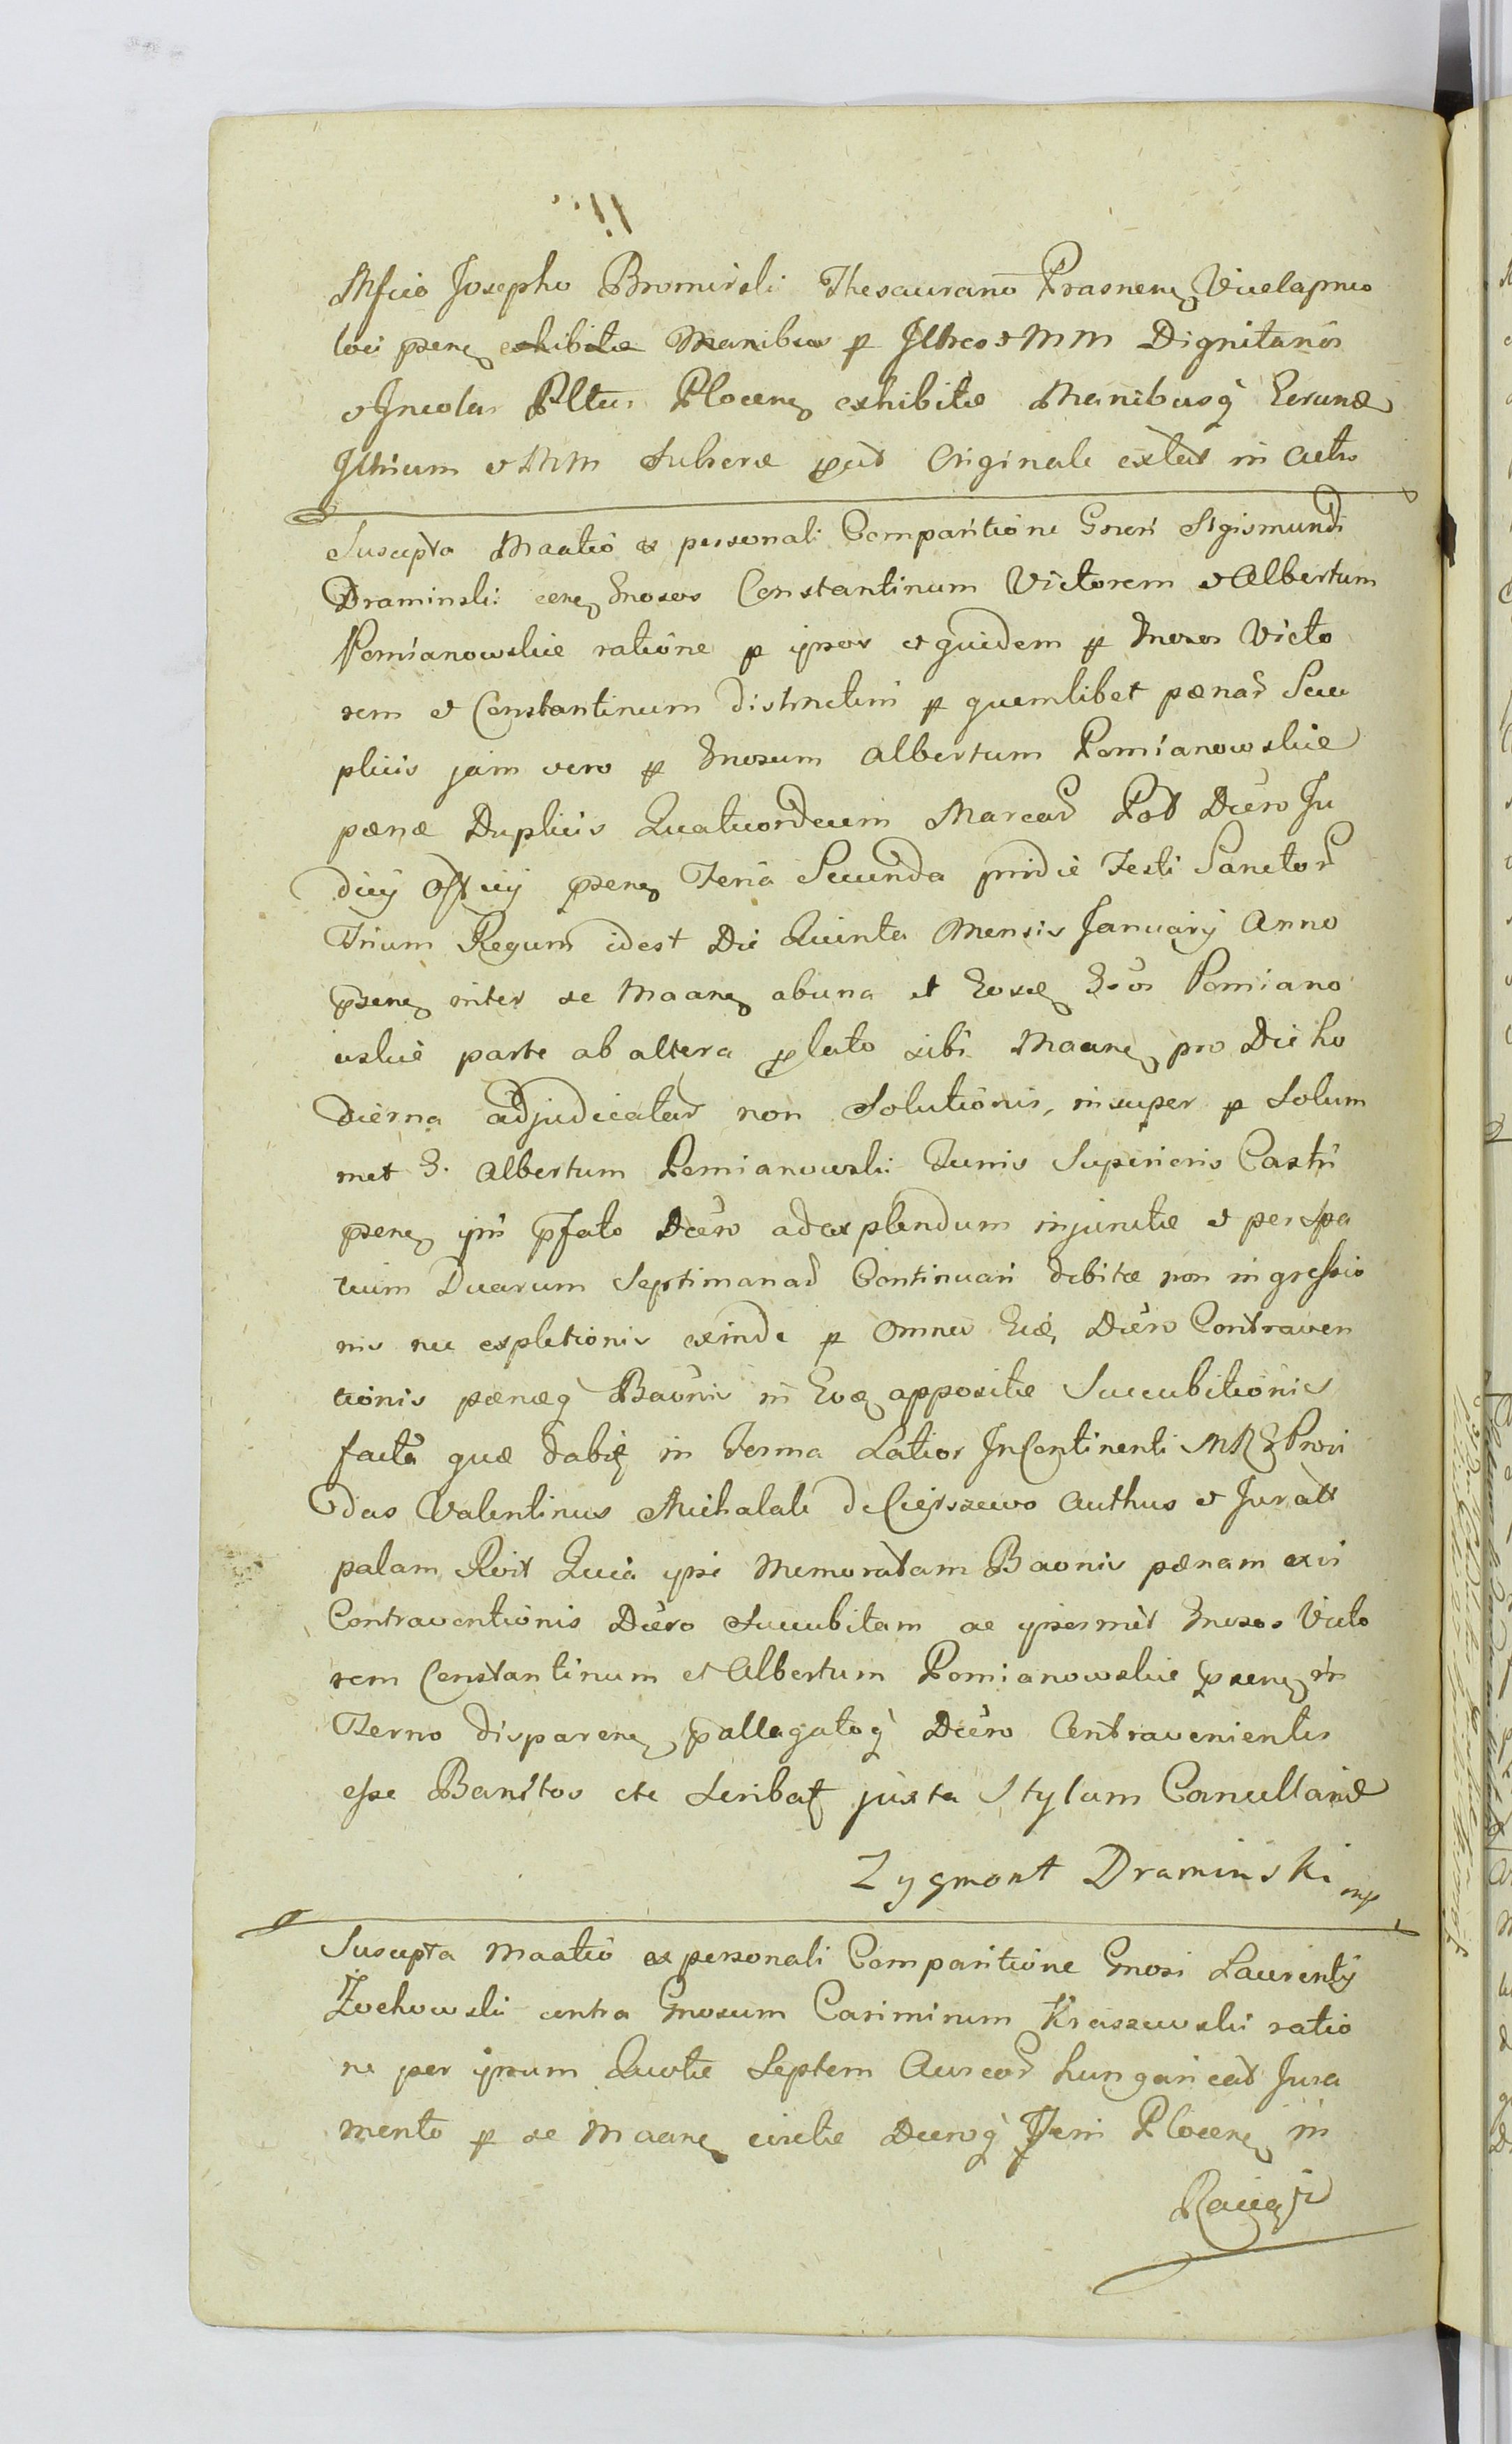 Mfico Josepho Bromirski Thesaurario Prasnen Vicelapneo
loci psen exhibitæ Manibus p Illres & MM Dignitarios
& Incolas Pltus Plocen exhibitæ Manibusq Eorund
Illrium & MM Subscræ put Originale extat in actis
Suscepta Maatio ex personali Comparitione Gnosi Sigismundi
Draminski cen Gnosos Constantinum Victorem & Albertum
Pomianowskie ratione p ipsos et quidem p Gnosos Victo
rem & Constantinum distinctim p quemlibet pænas Sex
plicis jam vero p Gnosum Albertum Pomianowskie
pænæ Duplicis Quatuordecim Marcar Pot Decro Ju
dicij psen Feria Secunda pridie Festi Sanctor
Trium Regum idest Die Quinta Mensis Januarij Anno
psen inter se Maan abuna et Eosd Pomiano
wskie parte ab altera plato sibi Maan pro Die ho
dierna adjudicatar non Solutionis, insuper p Solum
met G. Albertum Pomianowski Turris Superioris Castri
psen ipsi pfato Decro adexplendum injunctæ & per spa
tium Duarum Septimanar Continuari debitæ non ingressio
nis nec expletionis exinde p Omnes Decro Contraven
tionis pænæq Baonis in appositæ Succubitionis
facta quæ dabit in Forma Latior InContinenti Provi
dus Valentinus Michalak de Cierszewo Authus & Juratt
palam Rvit Quia ipse Memoratam Baonis pænam exvi
Contraventionis Decro Succubitam ac ipsosmet Gnosos Victo
rem Constantinum et Albertum Pomianowskie psen in
Termo disparen pallegatoq Decro Contravenientes
esse Banitos etc Scribat juxta Stylum Cancellariæ
Zygmont Draminski mp
Suscepta Maatio ex personali Comparitione Gnosi Laurentij
Zochowski contra Gnosum Casimirum Kraszewski ratio
ne per ipsum Quotæ Septem Aureor hungaricar Jura
mento p se Maan evictæ Decroq Plocen in